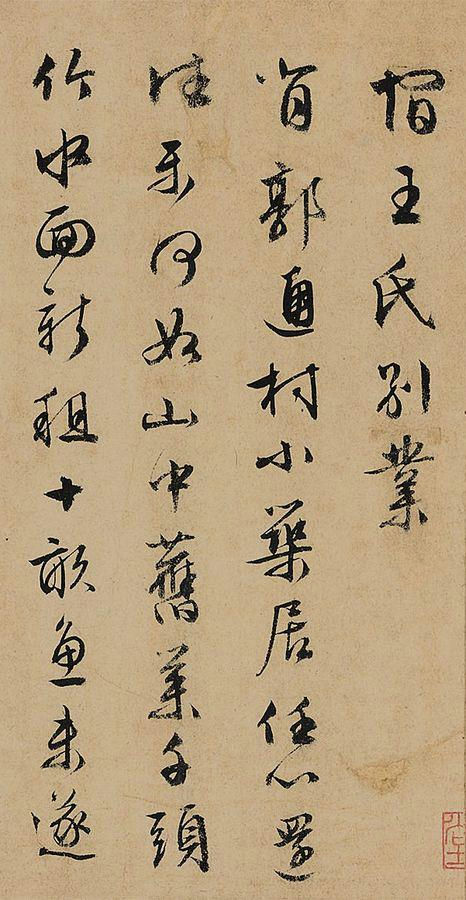 王氏別業
背郭通村小築居任心還
往樂何如山中舊業千頭
竹水面新租十畝魚未遂